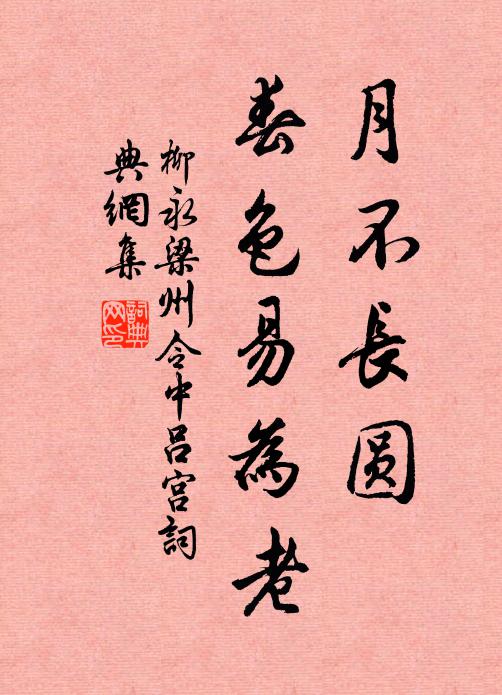 月不長圆
春色易為老
柳永梁州令中吕宫詞
典網集
詞典
网印